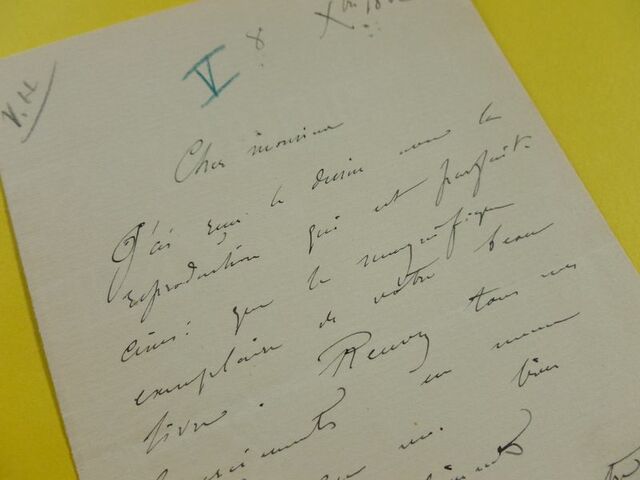 V.H
V 8 Xbre
Cher monsieur
J'ai reçu le dessin avec la
reproduction qui est parfaite
ainsi que le magnifique
exemplaire de votre beau
livre. Recevez tous mes
remerciements
bien